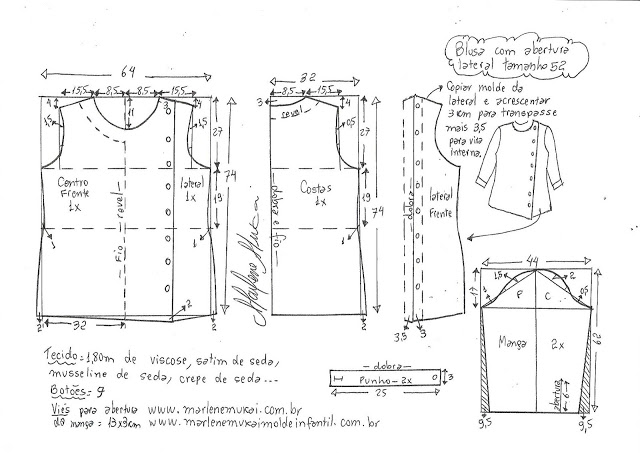 Blusa com abertura
lateral tamanho 52
Copiar molde da
lateral e acrescentar
3cm para transpasse
mais 3,5
para vira
interna.
64
15,5 8,5 8,5 15,5
4 11 3 4
1,5 1,5
27
Centro
Frente
1x
lateral
1x
Fio
revel
19
74
1 1
2 2 2
32
32
8,5 15,5
3 4
revel
0,5
27
Costas
1x
dobra e fio
19
74
1
2
Marlene Mukai
dobra
lateral
frente
3,5 3
44
1,5 2
17
1 F C 0,5
Manga 2x
62
abertura
6
9,5 9,5
dobra
Punho - 2x
3
25
Tecido = 1,80m de viscose, satim de seda,
musseline de seda, crepe de seda...
Botões = 9
Viés para abertura www.marlenemukai.com.br
da manga = 13x3cm www.marlenemukaimoldeinfantil.com.br